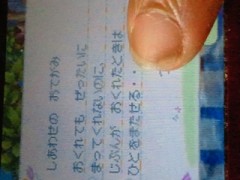 しあわせの おてがみ
おくれても ぜったいに
まってくれないのに、
じぶんが おくれたときは
ひとをまたせる・・